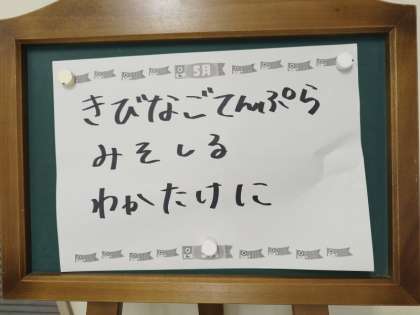 5月
きびなごてんぷら
みそしる
わかたけに